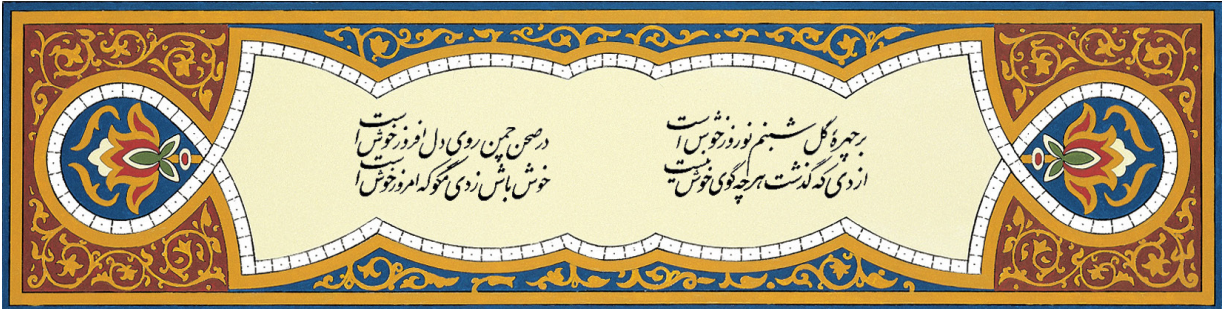 بر چهرهٔ گل شبنم نوروز خوش است
در صحن چمن روی دل افروز خوش است
از دی که گذشت هر چه گویی خوش نیست
خوش باش ز دی مگو که امروز خوش است